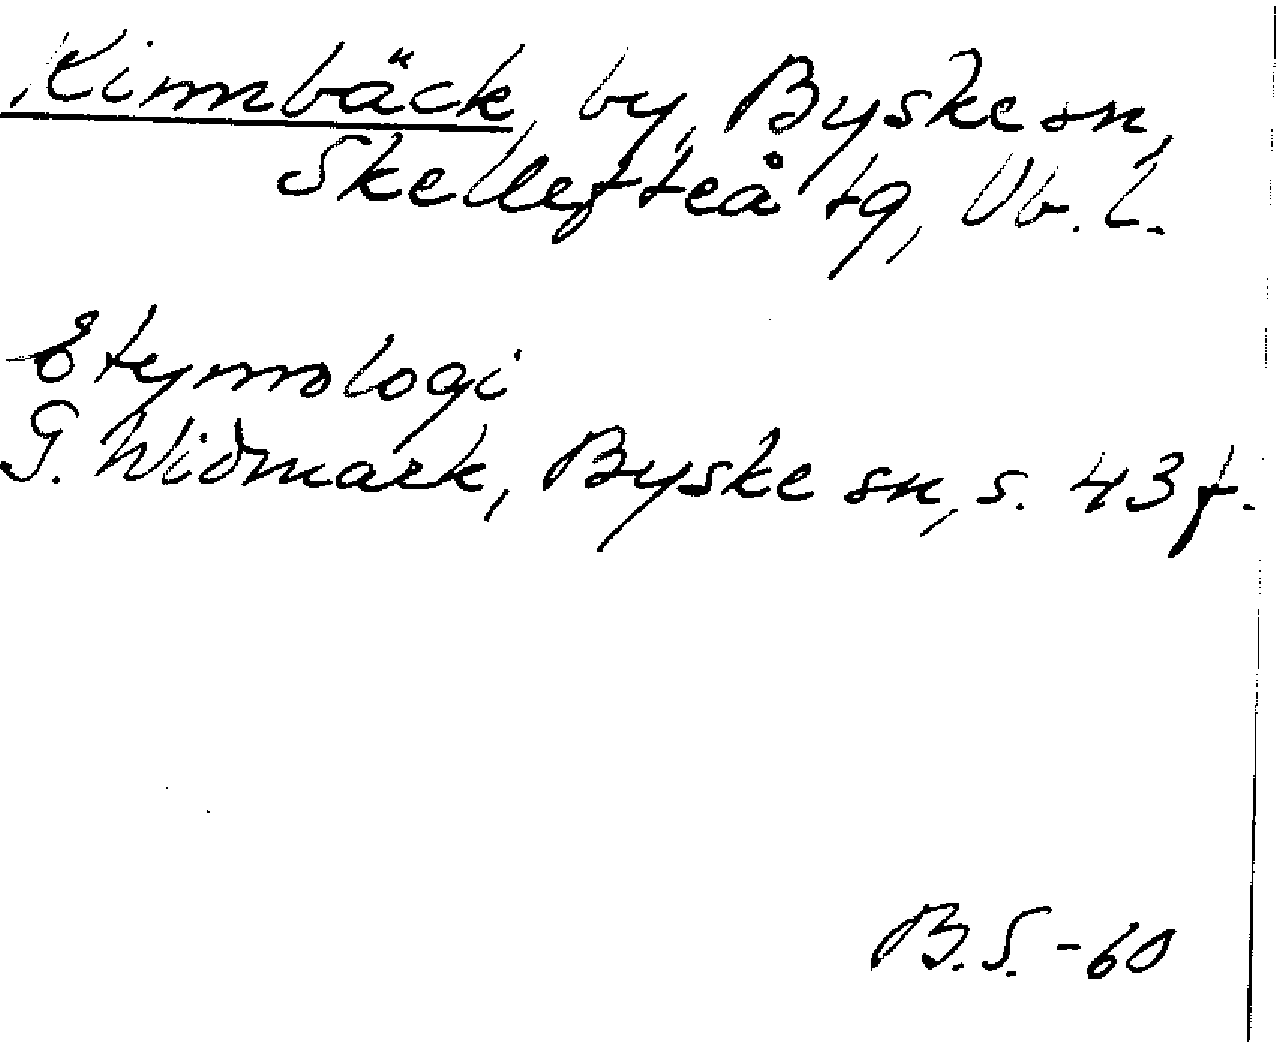 Kinnbäck, by, Byske sn,
Skellefteå tg, Vb. l.
Etymologi
G. Widmark, Byske sn, s. 43 f.
B.S. -60